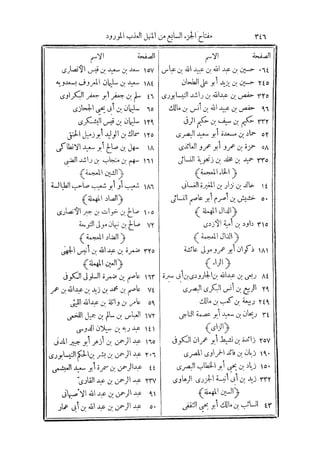 ٣٤٦ مفتاح الجزء السابع من المنهل العذب المورود
الصفحة الاسم
٠٦٤ حسين بن عبد الله بن عبيد الله بن عباس
٢٤٥ حسين بن يزيد أبو على الطحان
٣٢٥ حفص بن عبدالله بن راشد النيسابورى
٩٦ حفص بن عبيد الله بن أنس بن مالك
٣٣٢ حكيم بن سيف بن حكيم الرقى
٥٢ حماد بن مسعدة أبو سعيد البصرى
٥٨ حمزة بن عمرو أبو عمرو العائذى
٣٣٥ حميد بن مخلد بن زنجوية النسائى
﴿الخاء المعجمة﴾
١٤ خالد بن نزار بن المغيرة الغسانى
٥٠ خشيش بن أصرم أبو عاصم النسائى
﴿الدال المهملة﴾
٣١٥ داود بن أمية الأزدى
﴿الذال المعجمة﴾
١٨١ ذكوان أبو عمرو مولى عائشة
﴿الراء﴾
٨٤ ربعى بن عبدالله بن الجارود بن أبى سبرة
٢٩ الربيع بن أنس البكرى البصرى
٢٤٩ ربيعة بن كعب بن مالك
٣٤ ريحان بن سعيد أبو عصمة الناجى
﴿الزاى﴾
٢٥٧ زائدة بن نشيط أبو عمران الكوفى
١٩٠ زبان بن فائد الحمراوى المصرى
١٥٠ زياد بن يحيى أبو الخطاب البصرى
٣٣٢ زيد بن أبى أنيسة الجزرى الرهاوى
﴿السين المهملة﴾
٤٣ السائب بن مالك أبو يحيى الثقفى
الصفحة الاسم
١٥٧ سعد بن سعيد بن قيس الأنصارى
١٨٤ سعيد بن سليمان المعروف بسعدويه
٤٦ سلم بن جعفر أبو جعفر البكراوى
٦٥ سليمان بن أبى يحيى الحجازى
١٢٩ سليمان بن قيس اليشكرى
١٢٥ سماك بن الوليد أبو زميل الحنفى
١٨ سهل بن صالح أبو سعيد الانطاكى
١٦١ سهم بن منجاب بن راشد الضبى
﴿الشين المعجمة﴾
١٨٦ شعيب أو أبو شعيب صاحب الطيالسة
﴿الصاد المهملة﴾
١٠٥ صالح بن خوات بن جبير الأنصارى
٧٢ صالح بن نبهان مولى التوءمة
﴿الضاد المعجمة﴾
٣٢٥ ضمرة بن عبدالله بن أنيس الجهنى
﴿العين المهملة﴾
١٦٣ عاصم بن ضمرة السلولى الكوفى
٧٤ عاصم بن محمد بن زيد بن عبدالله بن عمر
٥٩ عامر بن واثلة بن عبدالله الليثى
١٧٢ العباس بن سالم بن جميل اللخمى
١٤١ عبد ربه بن سيلان الدوسى
١٦٥ عبد الرحمن بن أزهر أبو جبير المدنى
٢٠٦ عبد الرحمن بن بشر بن الحكم النيسابورى
٤٤ عبد الرحمن بن سمرة أبو سعيد العبشمى
٢٣٧ عبد الرحمن بن عبد القارى
٩١ عبد الرحمن بن عبد الله الأصبهانى
٥٠ عبد الرحمن بن عبد الله بن أبى عمار